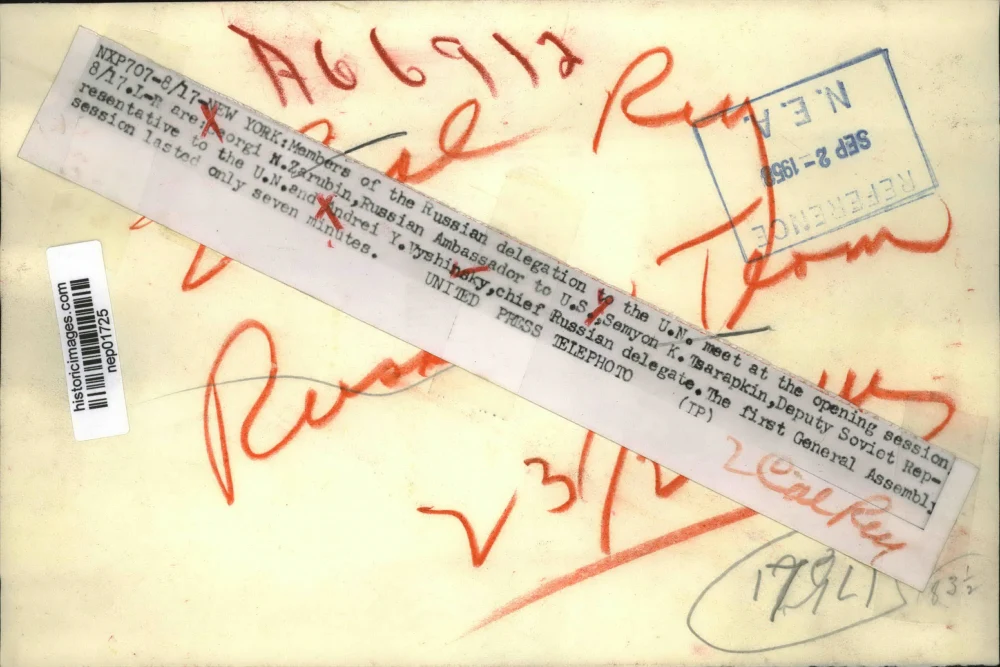 A66912
2 Col Reu
Team
Russ
23/2
NXP707-8/17-NEW YORK:Members of the Russian delegation to the U.N. meet at the opening session,
8/17.L-R are Georgi N.Zarubin,Russian Ambassador to U.S.;Semyon K. Tsarapkin,Deputy Soviet Rep-
resentative to the U.N.and Andrei Y.Vyshinsky,chief Russian delegate.The first General Assembly
session lasted only seven minutes.
UNITED PRESS TELEPHOTO
(TP)
2 Col Reu
N. E. A.
SEP 2-1953
REFERENCE
historicimages.com
nep01725
83½